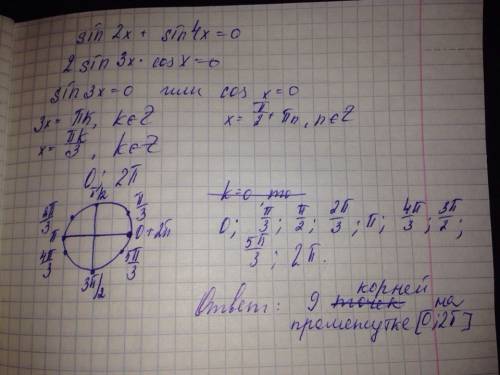 sin 2x + sin 4x = 0
2 sin 3x · cos x = 0
sin 3x = 0 или cos x = 0
3x = πk, k∈Z x = π/2 + πn, n∈Z
x = πk/3, k∈Z
0; 2π
k=0, то
0; π/3; π/2; 2π/3; π; 4π/3; 3π/2;
5π/3; 2π.
π/2
π/3
2π/3
π
0+2π
4π/3
5π/3
3π/2
Ответ: 9 точек корней на
промежутке [0; 2π]